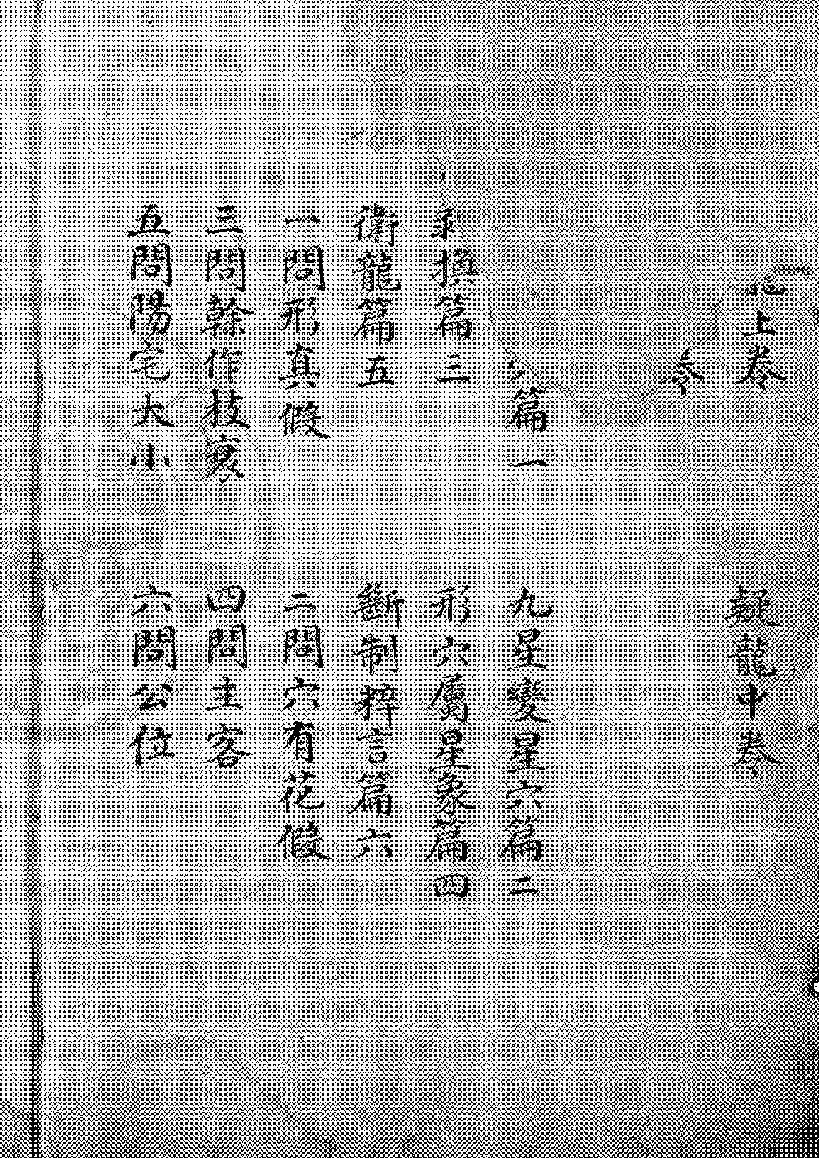 上卷 疑龍中卷
卷
篇一 九星變星穴篇二
撰篇三 形穴屬星象篇四
衛龍篇五 斷制粹言篇六
一問形真假 二問穴有花假
三問幹作枝裏 四問主客
五問陽宅大小 六問公位